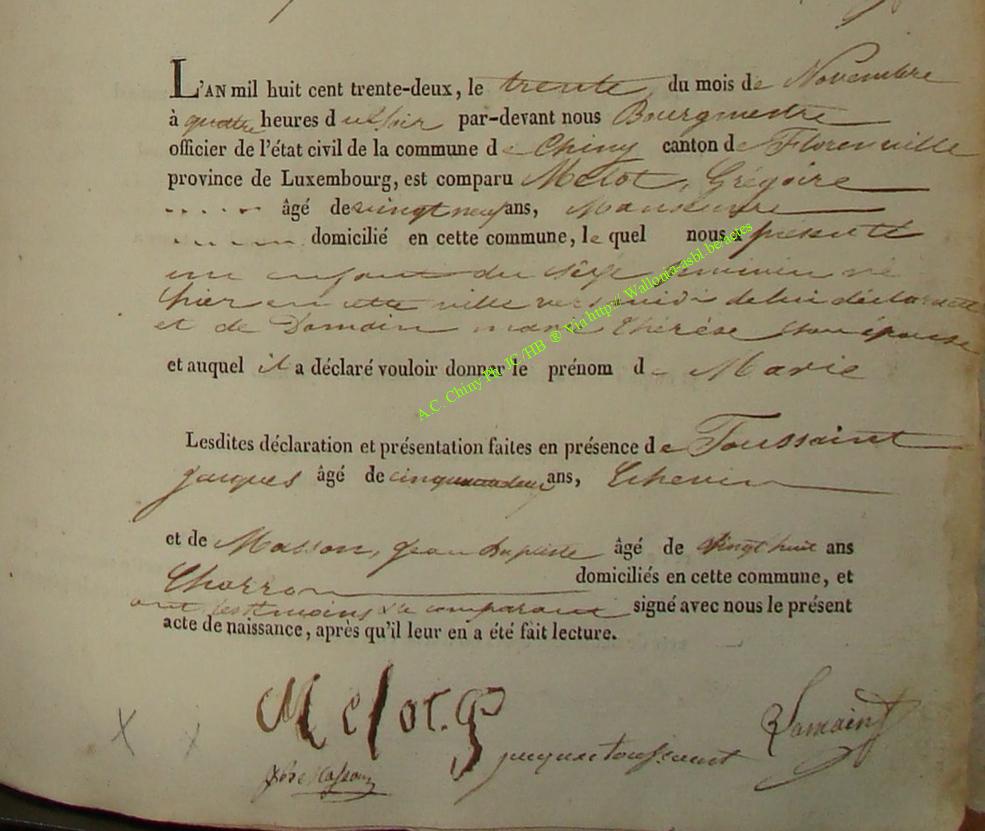 L'AN mil huit cent trente-deux, le trente du mois de Novembre
à quatre heures du Soir par-devant nous Bourgmestre
officier de l'état civil de la commune de Chiny canton de Florenville
province de Luxembourg, est comparu Melot, Grégoire
âgé de vingt neuf ans, Manoeuvre
domicilié en cette commune, le quel nous a présenté
un enfant du sexe feminin né
hier en cette ville vers midi de lui déclarant
et de Domain marie thérèse son épouse
et auquel il a déclaré vouloir donner le prénom de Marie
A.C. Chiny Ph JC /HB ® Via http:// Wallonia-asbl.be/actes
Lesdites déclaration et présentation faites en présence de Toussaint
jacques âgé de cinquante deux ans, Echevin
et de Masson, jean Baptiste âgé de Vingt huit ans
Charron domiciliés en cette commune, et
ont les témoins & le comparant signé avec nous le présent
acte de naissance, après qu'il leur en a été fait lecture.
Melot. G
jacque toussaint